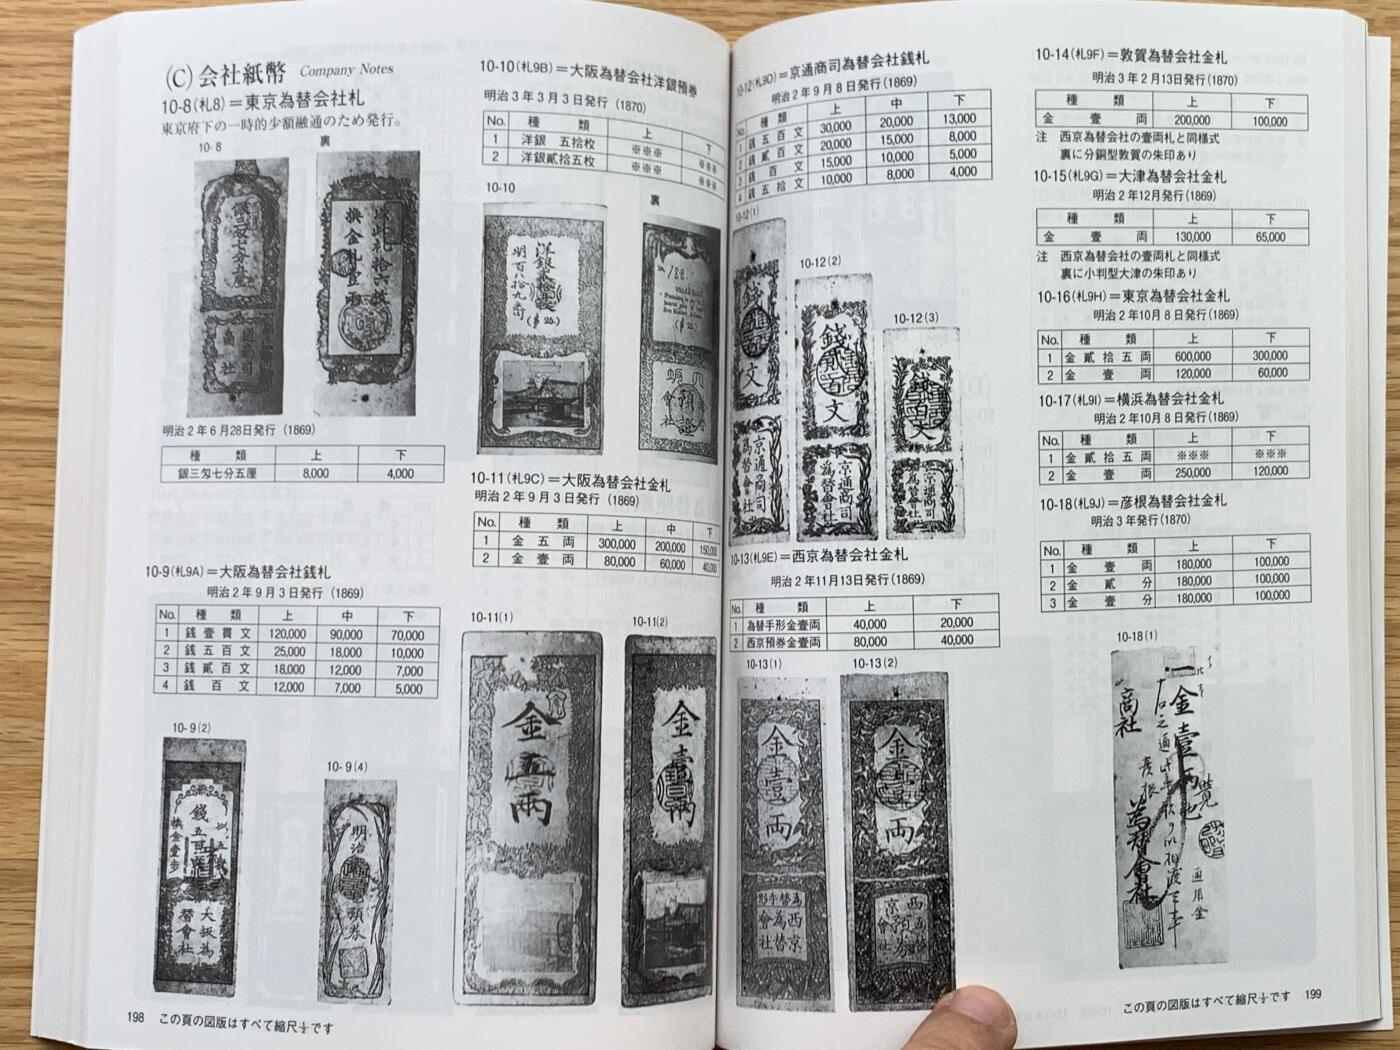 (C) 会社紙幣 Company Notes
10-8(札8)＝東京為替会社札
東京府下の一時的少額融通のため発行。
10-8
裏
明治2年6月28日発行 (1869)
種 類 上 下
銀三匁七分五厘 8,000 4,000
10-9(札9A)＝大阪為替会社銭札
明治2年9月3日発行 (1869)
No. 種 類 上 中 下
1 銭壹貫文 120,000 90,000 70,000
2 銭五百文 25,000 18,000 10,000
3 銭貳百文 18,000 12,000 7,000
4 銭百文 12,000 7,000 5,000
10-9(2)
銭五百文
換金壹歩
大坂為
替會社
10-9(4)
明治
預券
198 この頁の図版はすべて縮尺½です
10-10(札9B)＝大阪為替会社洋銀預券
明治3年3月3日発行 (1870)
No. 種 類 上 下
1 洋銀 五拾枚 ※※※ ※※※
2 洋銀貳拾五枚 ※※※ ※※※
10-10
裏
10-11(札9C)＝大阪為替会社金札
明治2年9月3日発行 (1869)
No. 種 類 上 中 下
1 金五両 300,000 200,000 150,000
2 金壹両 80,000 60,000 40,000
10-11(1)
金五兩
10-11(2)
金壹兩
10-12(札9D)＝京通商司為替会社銭札
明治2年9月8日発行 (1869)
No. 種 類 上 中 下
1 銭五百文 30,000 20,000 13,000
2 銭貳百文 20,000 15,000 8,000
3 銭百文 15,000 10,000 5,000
4 銭五拾文 10,000 8,000 4,000
10-12(1)
10-12(2)
錢貳百文
京通商司
為替會社
10-12(3)
京通商司
為替會社
10-13(札9E)＝西京為替会社金札
明治2年11月13日発行 (1869)
No. 種 類 上 下
1 為替手形金壹両 40,000 20,000
2 西京預券金壹両 80,000 40,000
10-13(1)
金壹両
為替手形
西京
為替
會社
10-13(2)
10-14(札9F)＝敦賀為替会社金札
明治3年2月13日発行 (1870)
種 類 上 下
金壹両 200,000 100,000
注 西京為替会社の壹両札と同様式
裏に分銅型敦賀の朱印あり
10-15(札9G)＝大津為替会社金札
明治2年12月発行 (1869)
種 類 上 下
金壹両 130,000 65,000
注 西京為替会社の壹両札と同様式
裏に小判型大津の朱印あり
10-16(札9H)＝東京為替会社金札
明治2年10月8日発行 (1869)
No. 種 類 上 下
1 金貳拾五両 600,000 300,000
2 金壹両 120,000 60,000
10-17(札9I)＝横浜為替会社金札
明治2年10月8日発行 (1869)
No. 種 類 上 下
1 金貳拾五両 ※※※ ※※※
2 金壹両 250,000 120,000
10-18(札9J)＝彦根為替会社金札
明治3年発行 (1870)
No. 種 類 上 下
1 金壹両 180,000 100,000
2 金貳分 180,000 100,000
3 金壹分 180,000 100,000
10-18(1)
この頁の図版はすべて縮尺½です 199